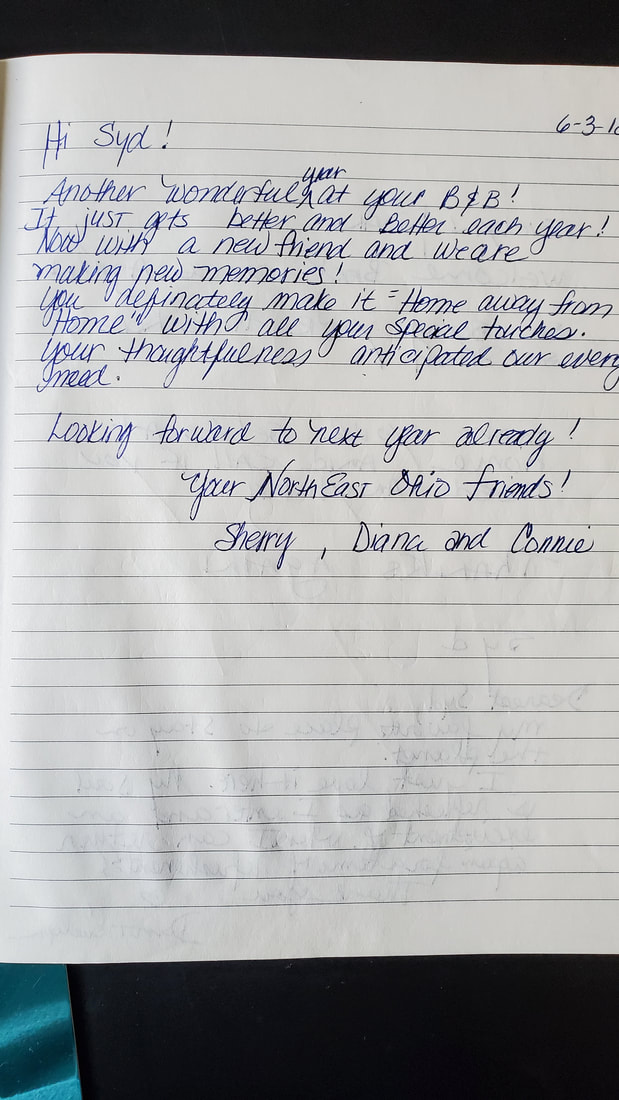 6-3-1
Hi Syd!
Another wonderful year at your B&B!
It just gets better and Better each year!
Now with a new friend and we are
making new memories!
You definately make it "Home away from
Home" with all your special touches.
Your thoughtfulness anticipated our every
need.
Looking forward to next year already!
Your NorthEast Ohio friends!
Sherry, Diana and Connie